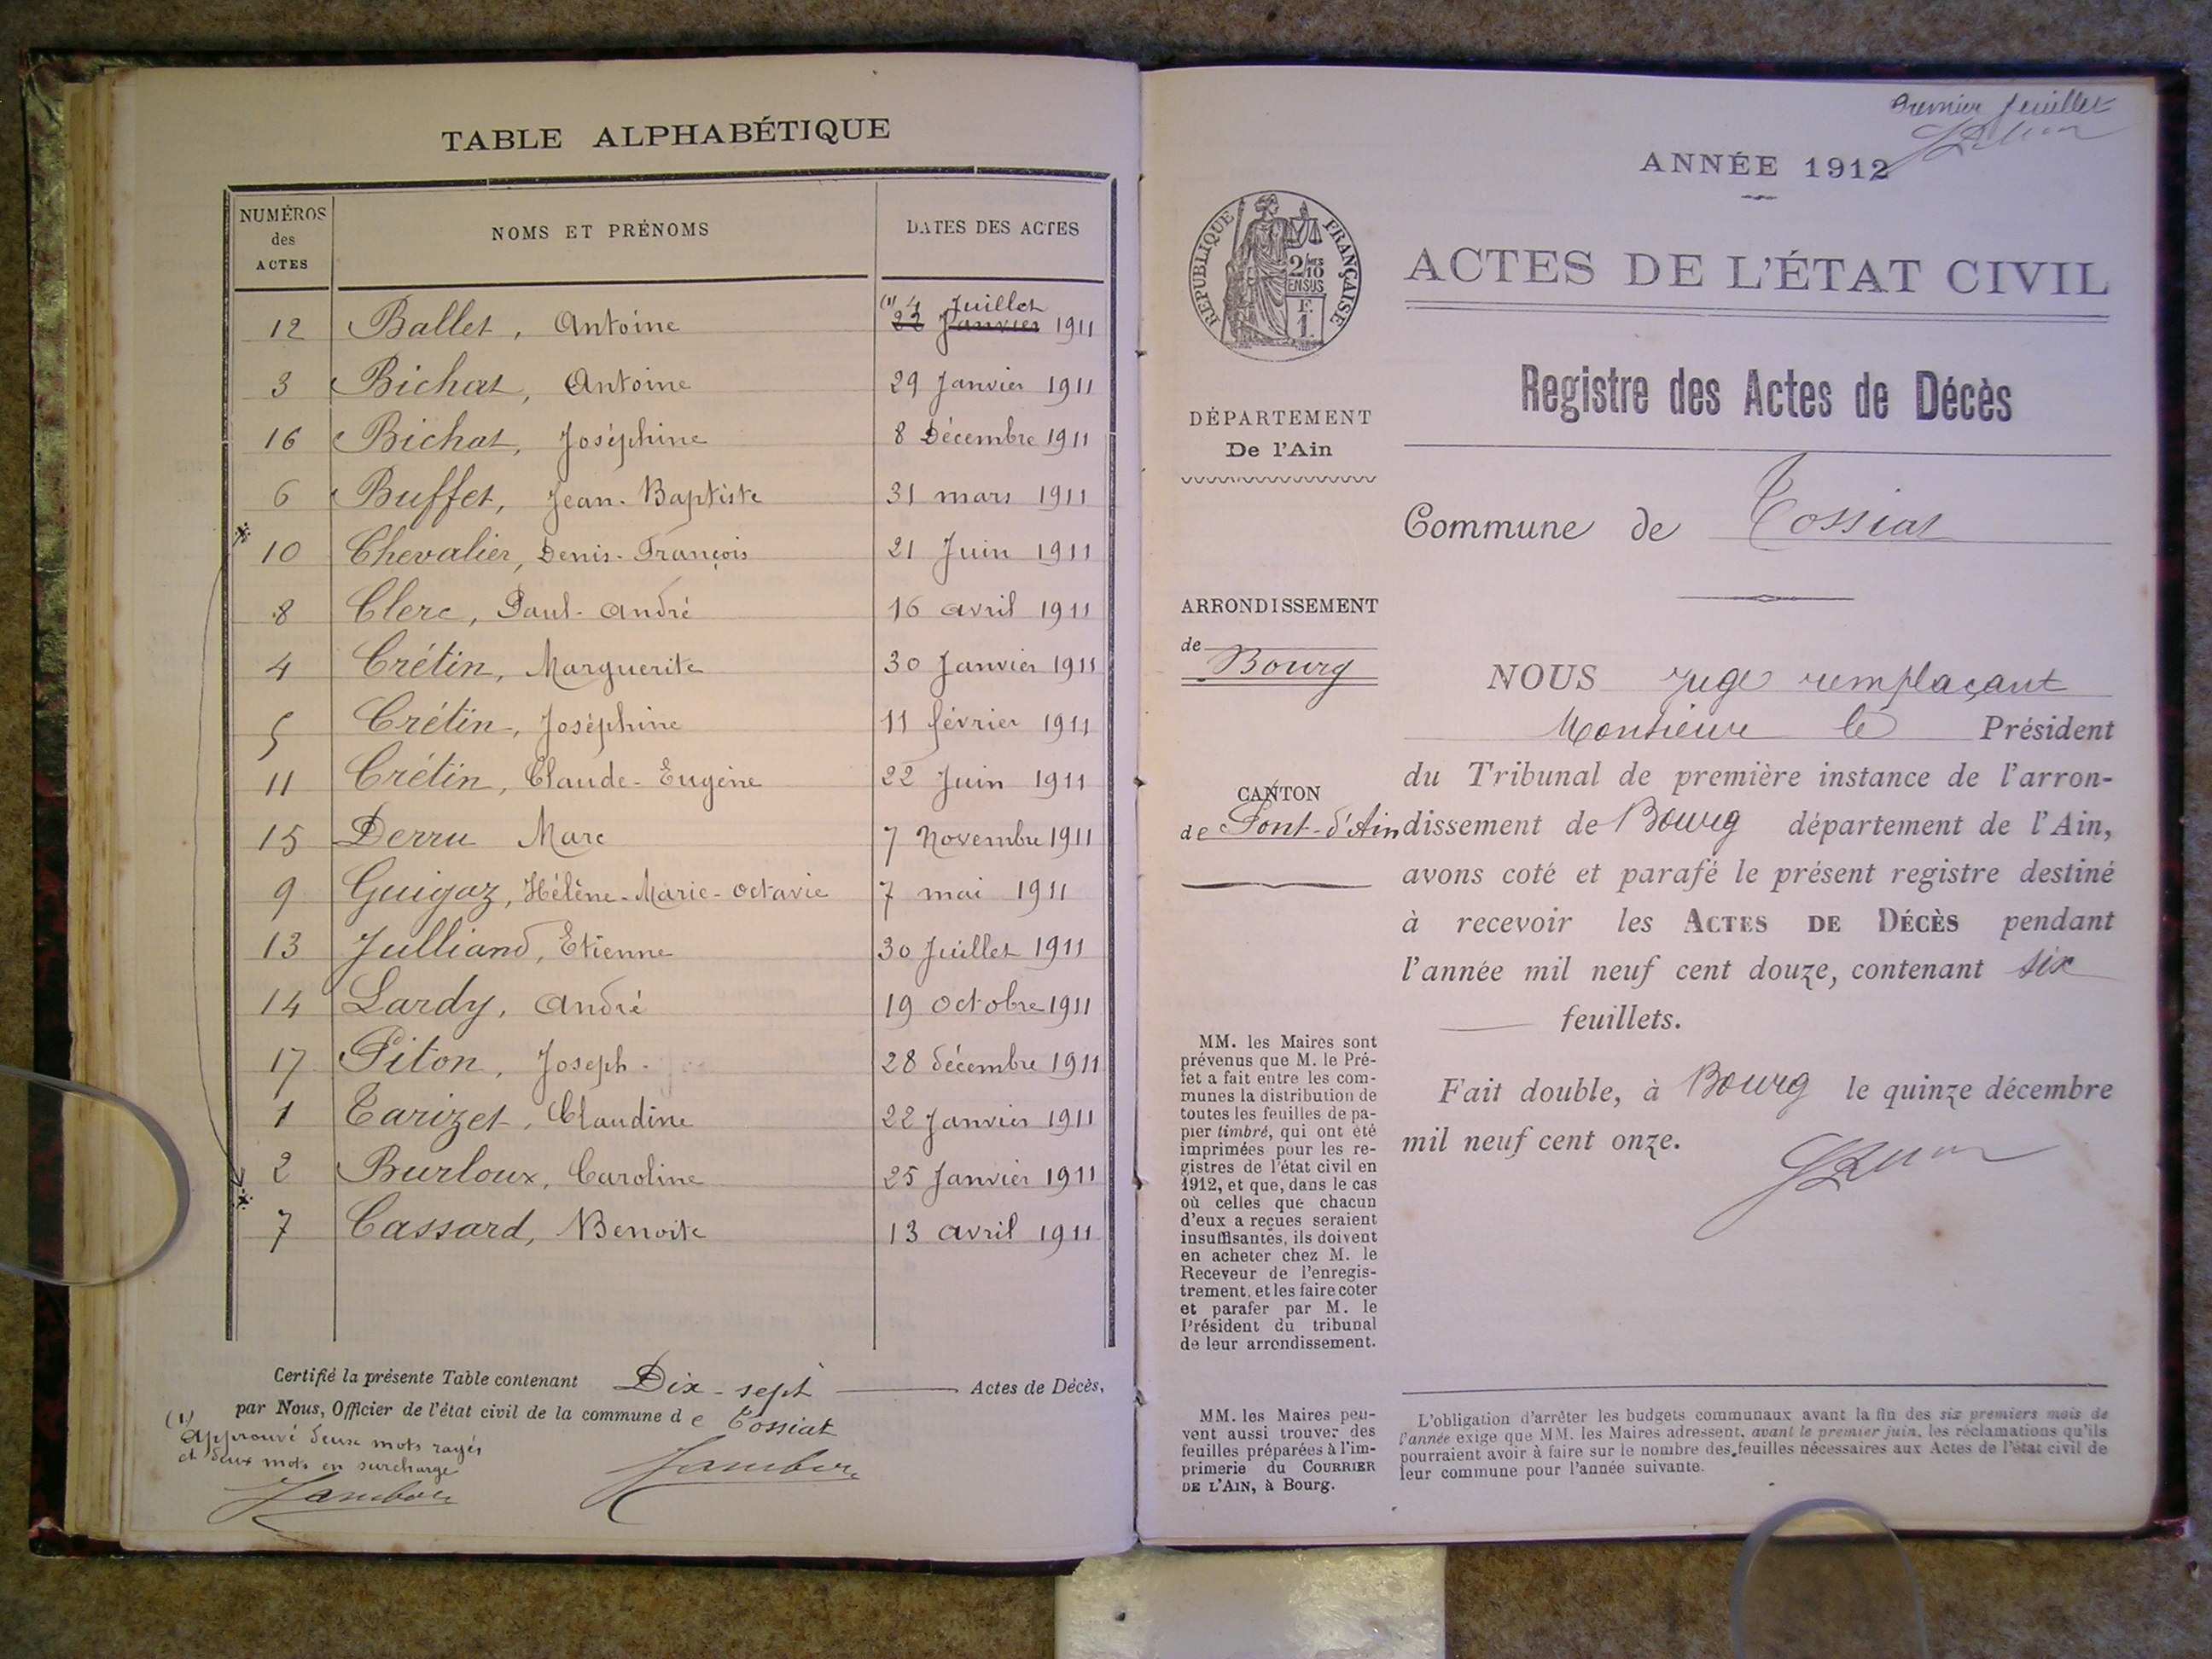 TABLE ALPHABÉTIQUE
NUMÉROS des ACTES | NOMS ET PRÉNOMS | DATES DES ACTES
(1) 4 Juillet
12 Ballet, Antoine 22 Janvier 1911
3 Bichat, Antoine 29 Janvier 1911
16 Bichat, Joséphine 8 Décembre 1911
6 Buffet, Jean-Baptiste 31 mars 1911
10 Chevalier, Denis-François 21 Juin 1911
8 Clerc, Paul-André 16 avril 1911
4 Crétin, Marguerite 30 Janvier 1911
5 Crétin, Joséphine 11 février 1911
11 Crétin, Claude-Eugène 22 Juin 1911
15 Derru Marc 7 Novembre 1911
9 Guigaz, Hélène-Marie-Octavie 7 mai 1911
13 Julliand, Etienne 30 Juillet 1911
14 Lardy, André 19 octobre 1911
17 Piton, Joseph 28 décembre 1911
1 Tarizet, Claudine 22 Janvier 1911
2 Burloux, Caroline 25 Janvier 1911
7 Cassard, Benoite 13 avril 1911
Certifié la présente Table contenant Dix-sept Actes de Décès,
par Nous, Officier de l'état civil de la commune de Tossiat
(1)
Approuvé deux mots rayés
et deux mots en surcharge
Premier feuillet
ANNÉE 1912
RÉPUBLIQUE FRANÇAISE
2/10
EN SUS
F.
1.
ACTES DE L'ÉTAT CIVIL
Registre des Actes de Décès
DÉPARTEMENT
De l'Ain
Commune de Tossiat
ARRONDISSEMENT
de Bourg
CANTON
de Pont-d'Ain
NOUS juge remplaçant
Monsieur le Président
du Tribunal de première instance de l'arron-
dissement de Bourg département de l'Ain,
avons coté et parafé le présent registre destiné
à recevoir les ACTES DE DÉCÈS pendant
l'année mil neuf cent douze, contenant six
feuillets.
Fait double, à Bourg le quinze décembre
mil neuf cent onze.
MM. les Maires sont
prévenus que M. le Pré-
fet a fait entre les com-
munes la distribution de
toutes les feuilles de pa-
pier timbré, qui ont été
imprimées pour les re-
gistres de l'état civil en
1912, et que, dans le cas
où celles que chacun
d'eux a reçues seraient
insuffisantes, ils doivent
en acheter chez M. le
Receveur de l'enregis-
trement, et les faire coter
et parafer par M. le
Président du tribunal
de leur arrondissement.
MM. les Maires peu-
vent aussi trouver des
feuilles préparées à l'im-
primerie du COURRIER
DE L'AIN, à Bourg.
L'obligation d'arrêter les budgets communaux avant la fin des six premiers mois de
l'année exige que MM. les Maires adressent, avant le premier juin, les réclamations qu'ils
pourraient avoir à faire sur le nombre des feuilles nécessaires aux Actes de l'état civil de
leur commune pour l'année suivante.